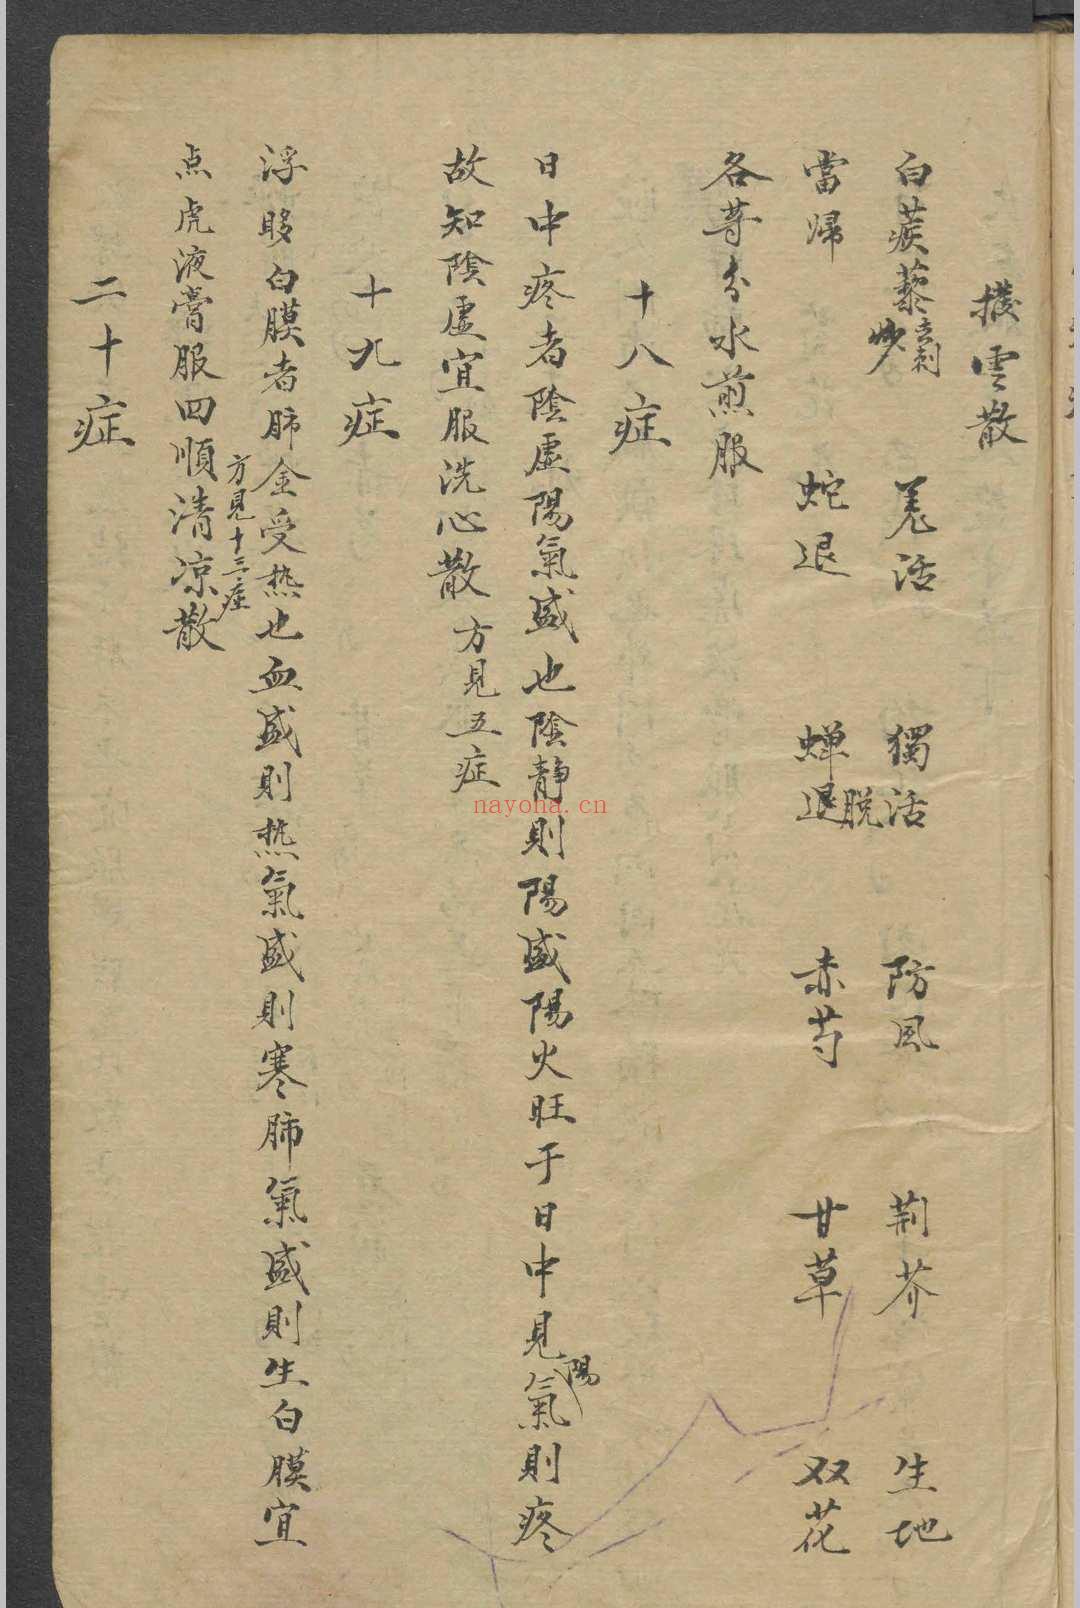 撥雲散
白蒺藜去刺炒 羌活 獨活 防風 荆芥 生地
當帰 蛇退 蝉退脱 赤芍 甘草 双花
各等分水煎服
十八症
日中疼者陰虛陽氣盛也陰静則陽盛陽火旺于日中見陽氣則疼
故知陰虛宜服洗心散方見五症
十九症
浮眵白膜者肺金受热也血盛則热氣盛則寒肺氣盛則生白膜宜
点虎液膏服四順清凉散方見十三症
二十症
nayona.cn